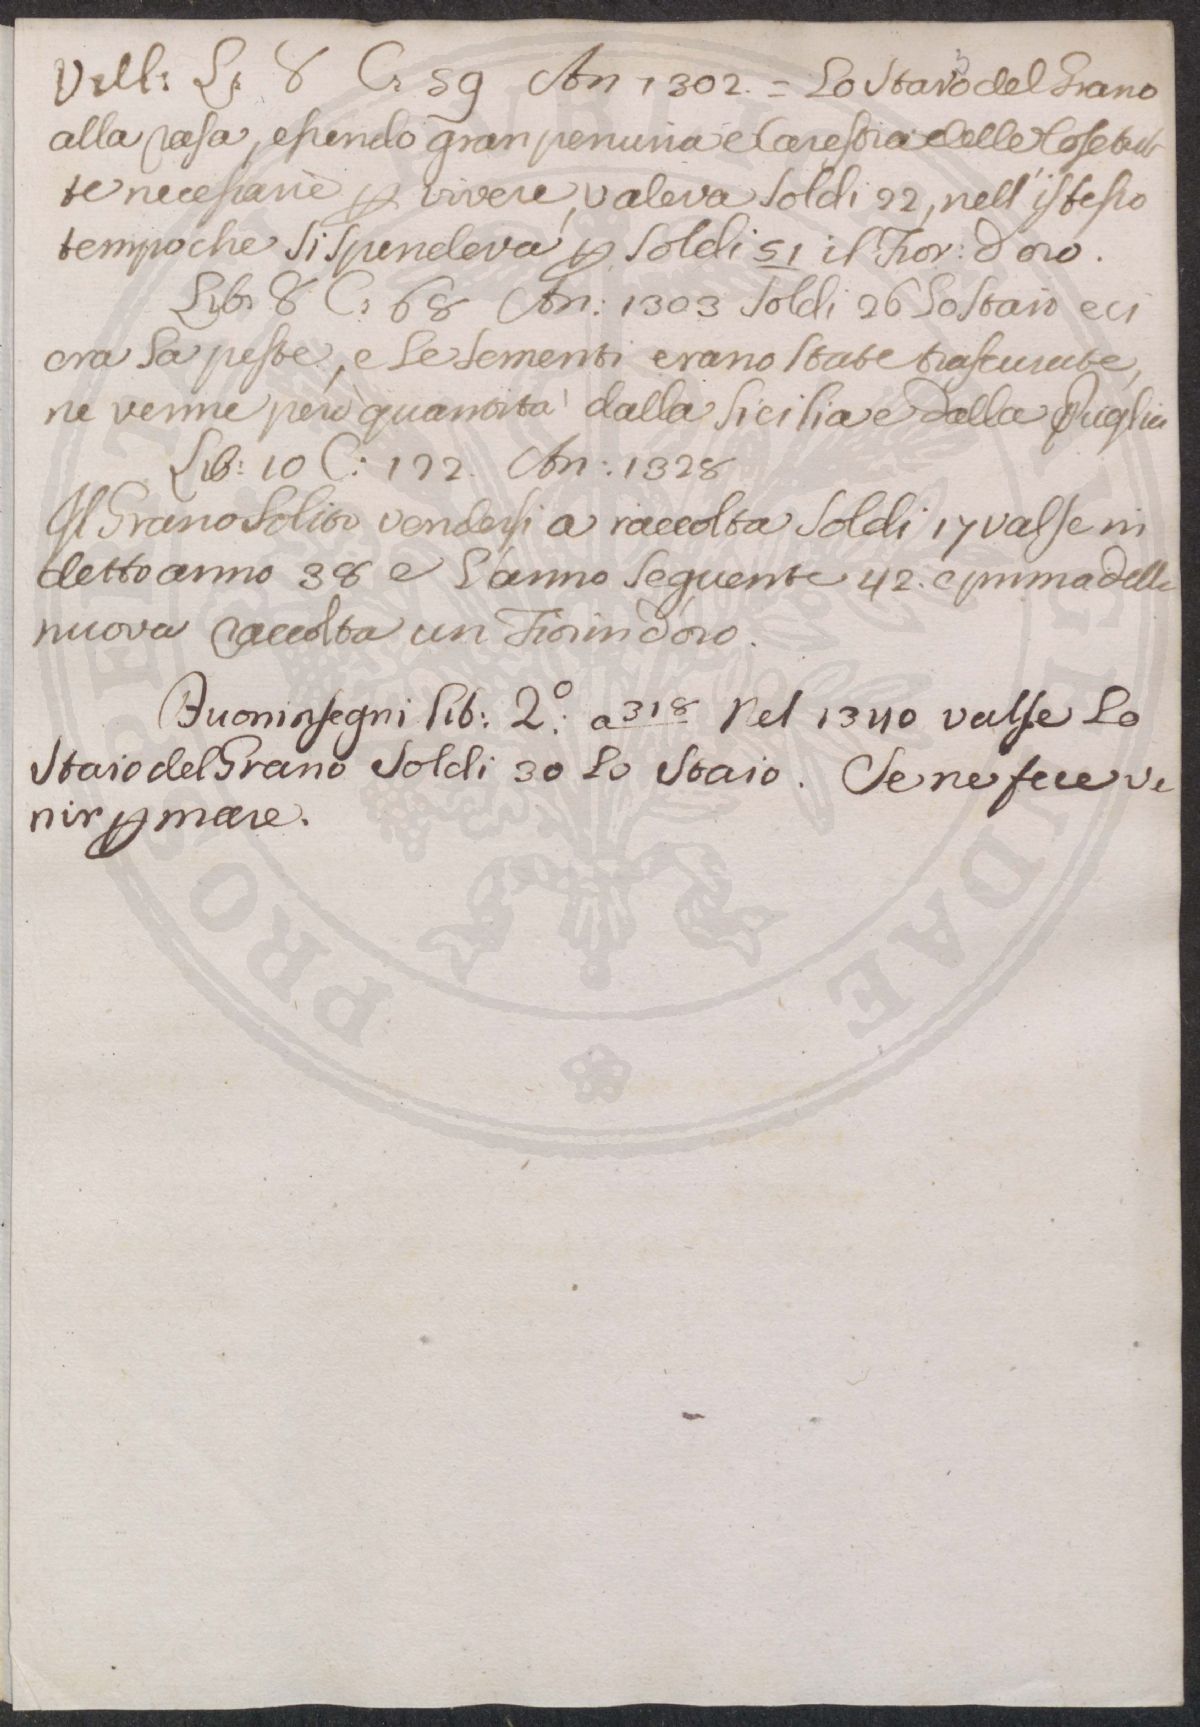 Vill: L: 8 C: 59 An 1302. = Lo Staro del Grano
alla rasa, essendo gran penuria e Carestia delle Cose tut
te necessarie p vivere, valeva Soldi 22, nell' istesso
tempo che si spendeva p Soldi 51 il Fior: d'oro.
Lib: 8 C: 68 An: 1303 Soldi 26 Lo Staio e ci
era La peste, e Le Sementi erano State trascurate,
ne venne però quantità dalla Sicilia e dalla Puglia
Lib: 10 C: 122. An: 1328
Il Grano Solito vendersi a raccolta Soldi 17 valse in
detto anno 38 e L'anno Seguente 42. e prima della
nuova raccolta un Fiorin d'oro.
Buoninsegni Lib: 2º: a 318 Nel 1340 valse Lo
Staio del Grano Soldi 30 Lo Staio. Se ne fece ve
nir p mare.
PRO
IDAE